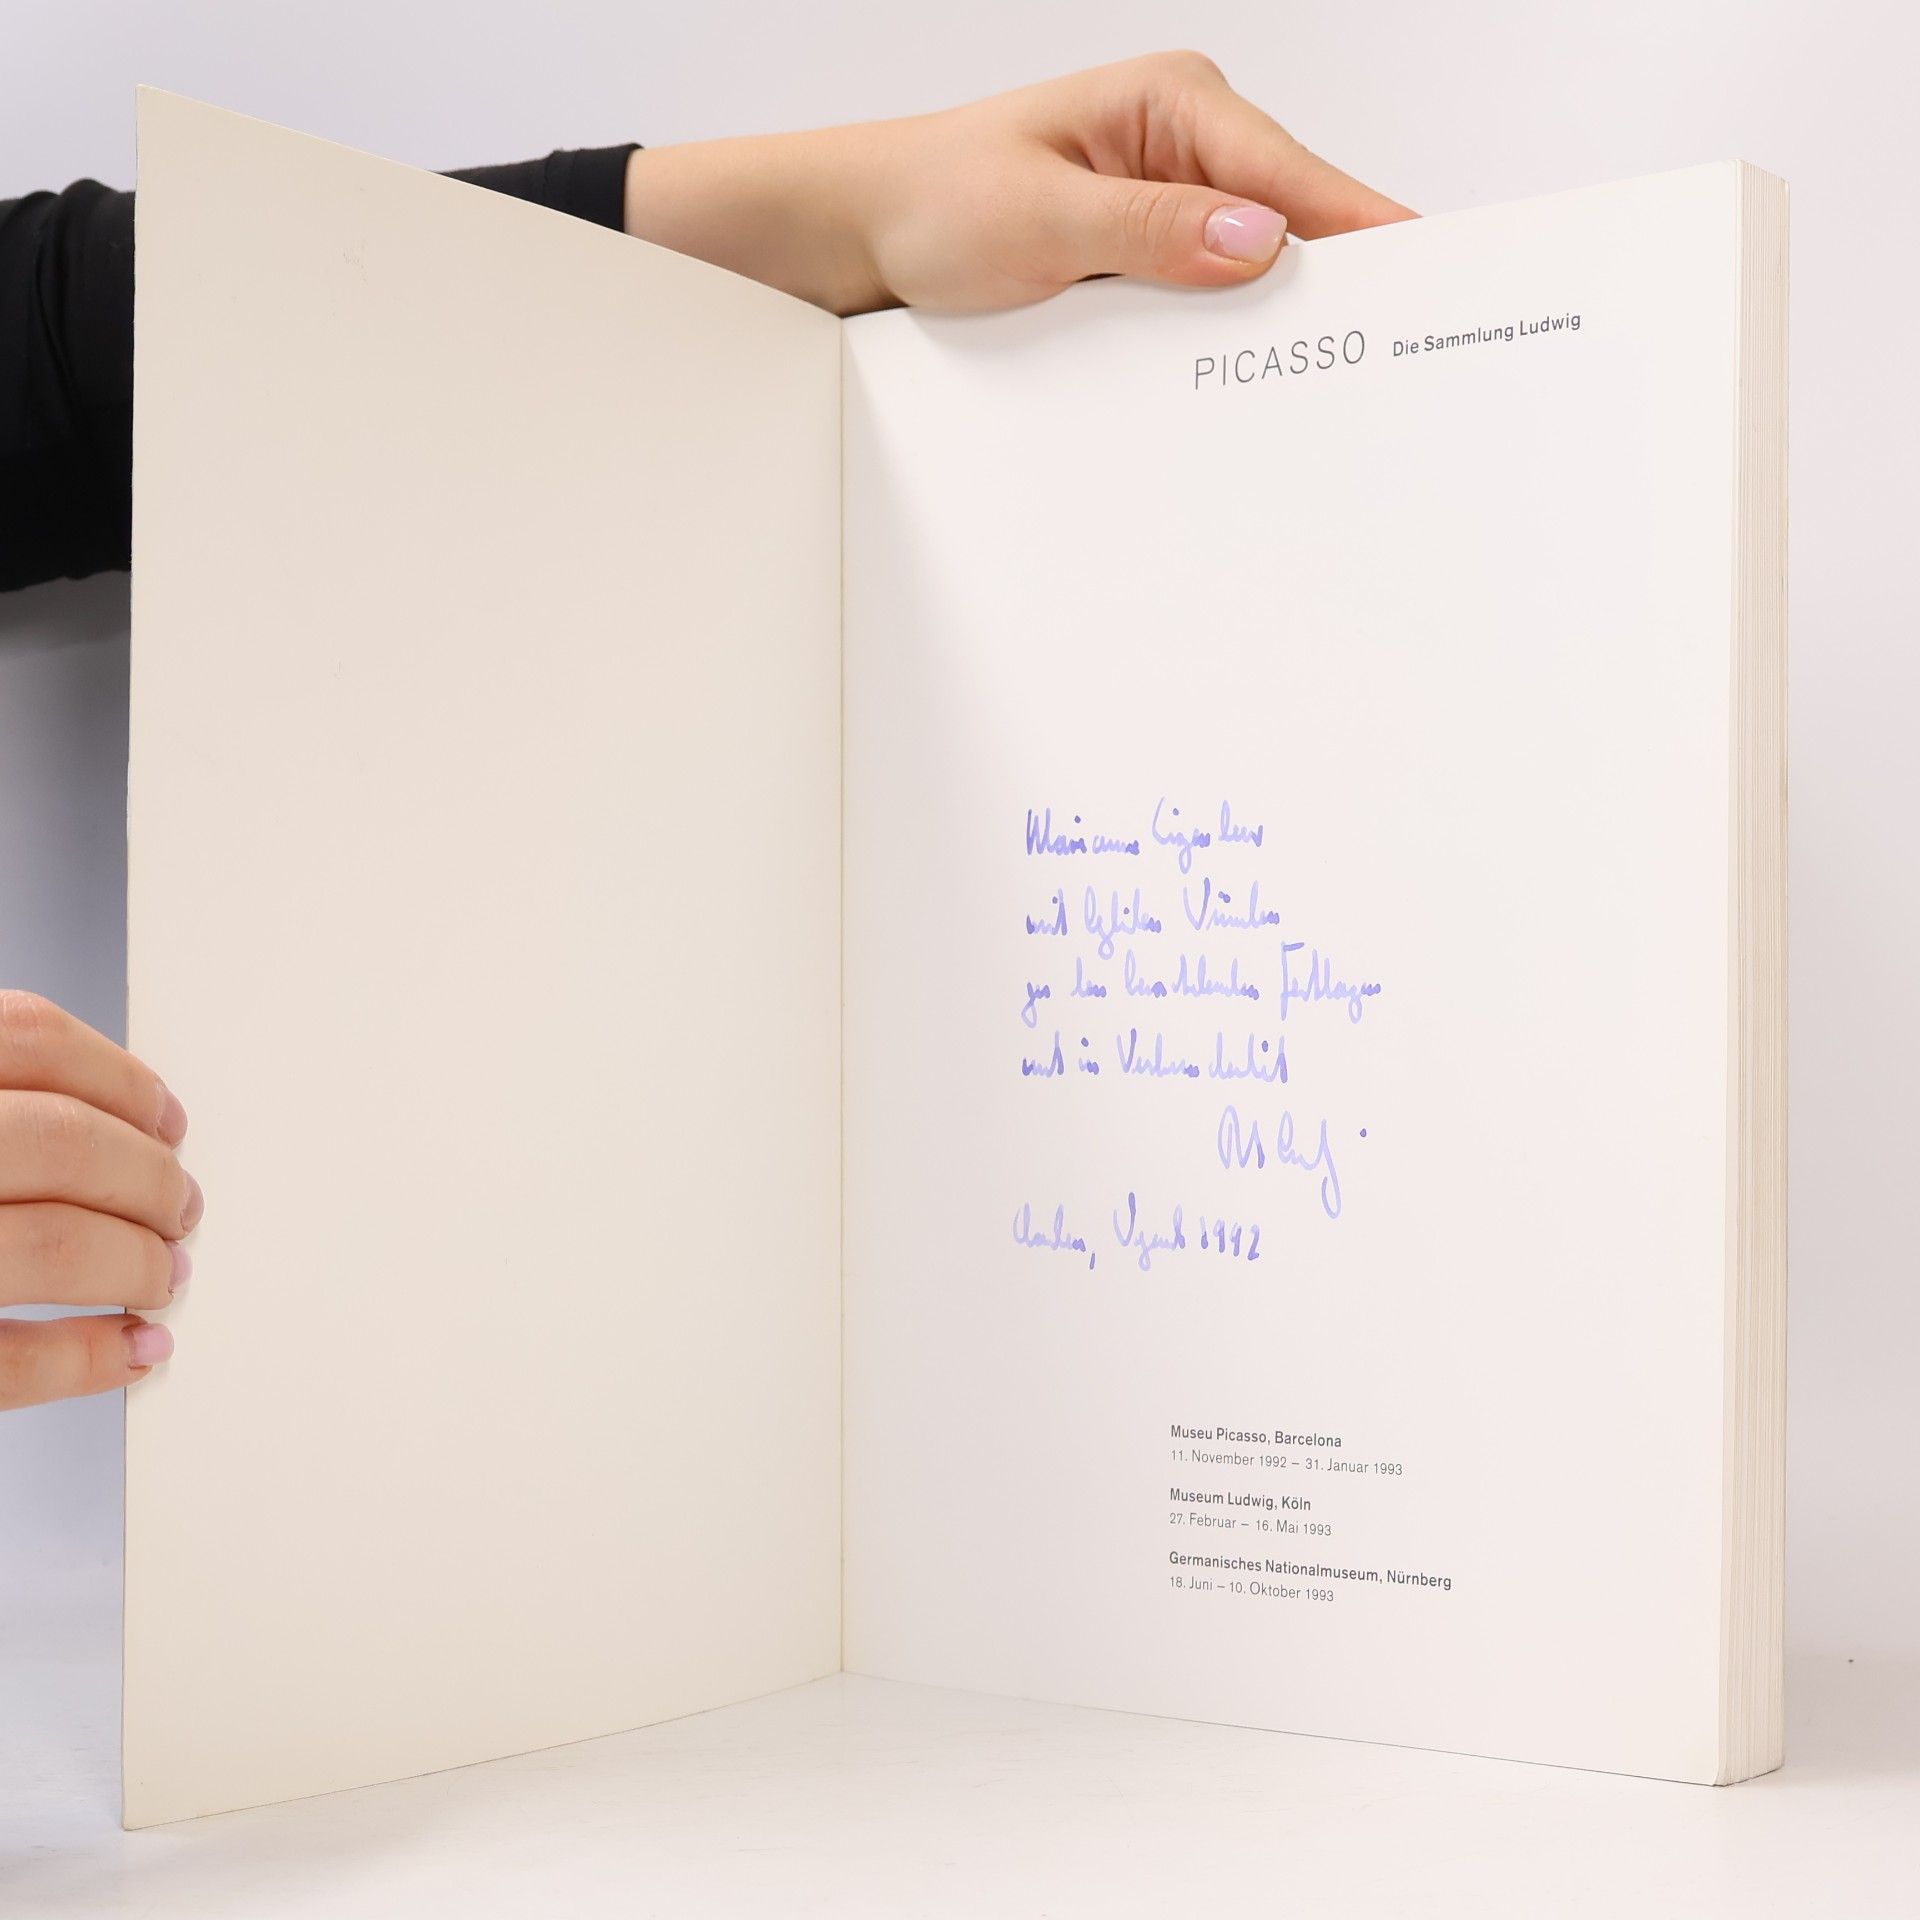 PICASSO Die Sammlung Ludwig
Marianne
mit Wünschen
zu den Festtagen
und in Verbundenheit
Aachen, Advent 1992
Museu Picasso, Barcelona
11. November 1992 – 31. Januar 1993
Museum Ludwig, Köln
27. Februar – 16. Mai 1993
Germanisches Nationalmuseum, Nürnberg
18. Juni – 10. Oktober 1993